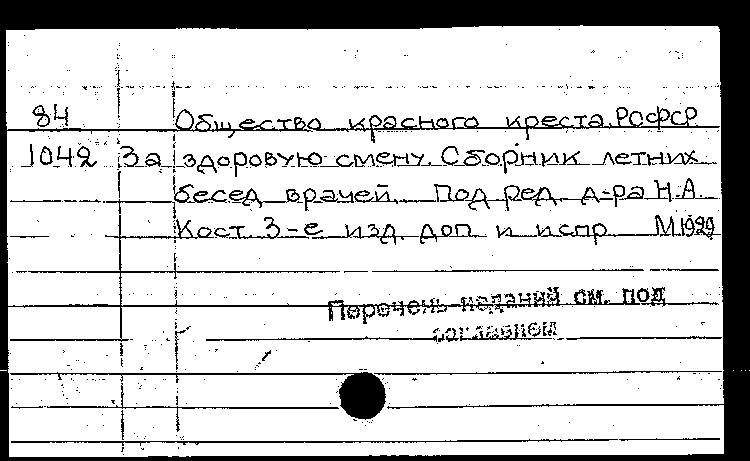 84 Общество красного креста. РСФСР
1042 За здоровую смену. Сборник летних
бесед врачей. Под ред. д-ра Н.А.
Кост. 3-е изд. доп. и испр. М 1929
Перечень изданий см. под
заглавием